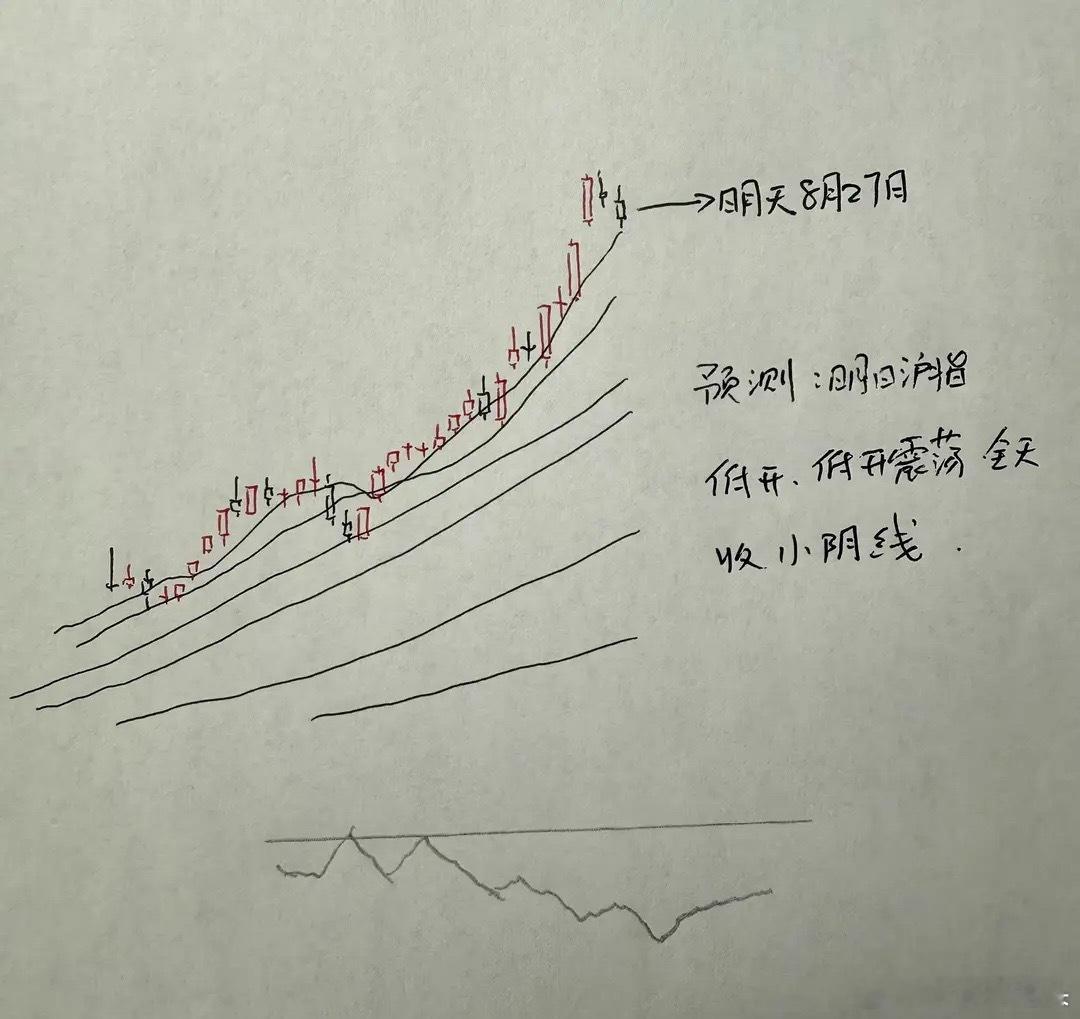 明天8月27日
预测：明日沪指
低开、低开震荡 全天
收小阴线.